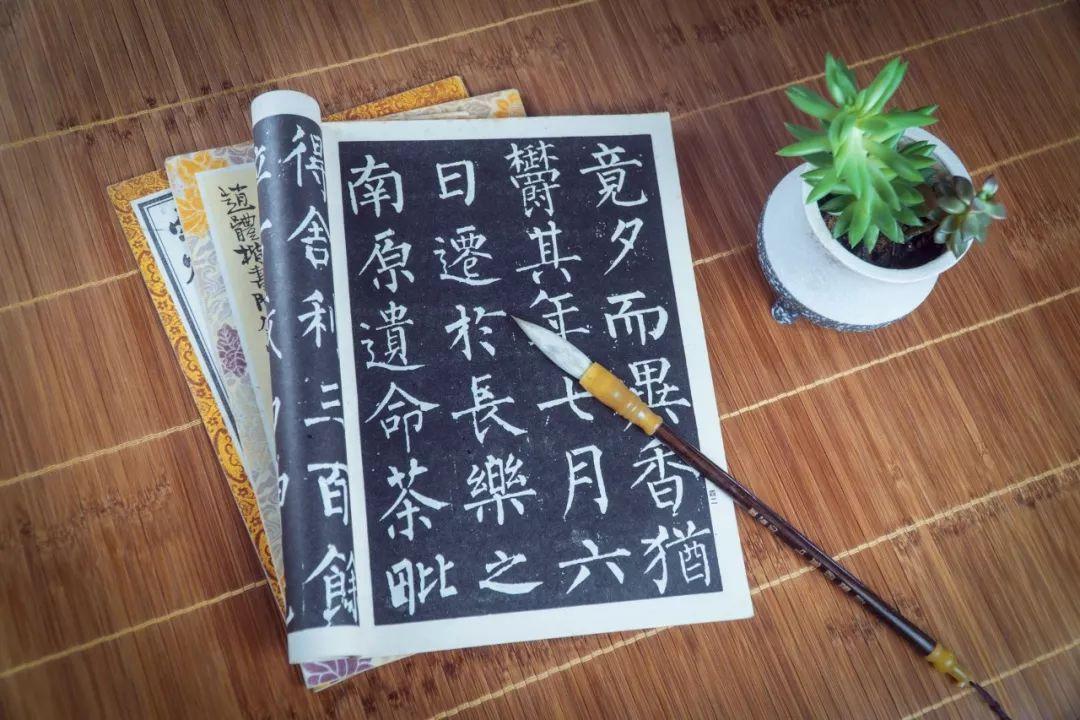 竟夕而異香猶
欝其年七月六
日遷於長樂之
南原遺命茶毗
得舍利三百餘
體楷書